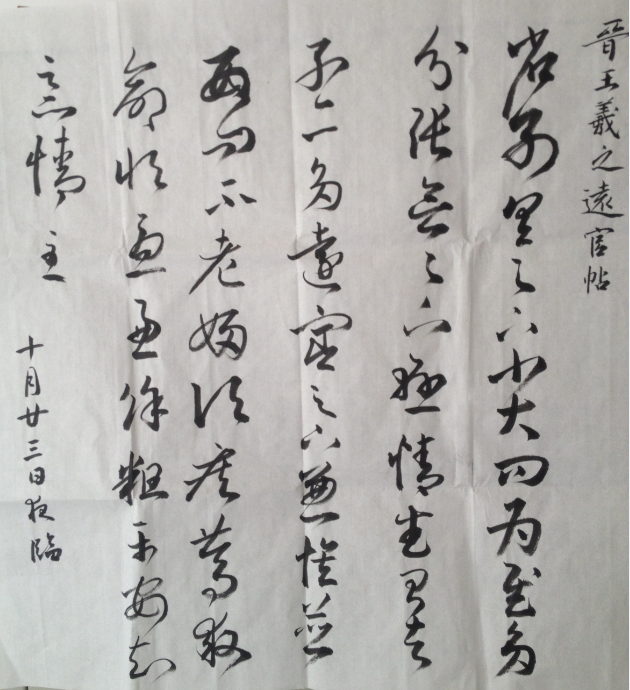 晉王羲之遠宦帖
省別具足下小大問為慰多
分張念足下懸情武昌諸
子亦多遠宦足下兼懷並
數問不老婦頃疾篤救
命恒憂慮餘粗平安知
足下情至
十月廿三日夜臨